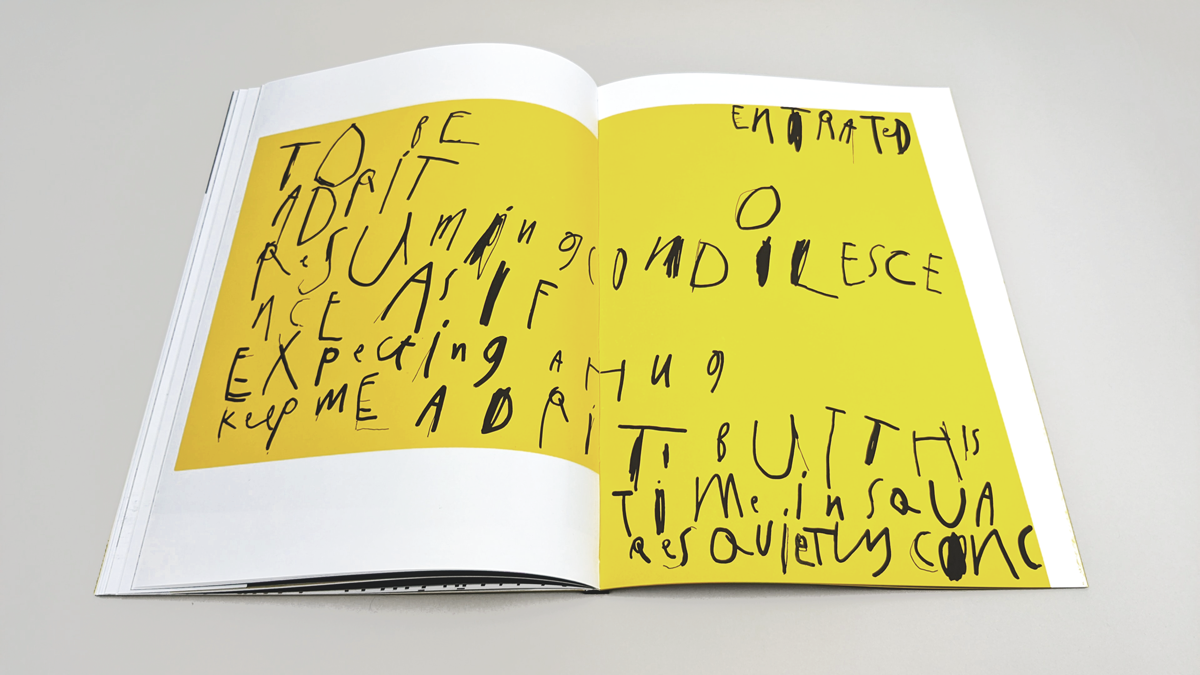 TO BE
ADRiT
ReSUming CONDILESCE
nCE AS IF
EXpecting A HUg
keep mE ADRi
ENTRATeD
O
Ti BUT THIS
TiMe in SQUA
ReS QUiETLy CONC